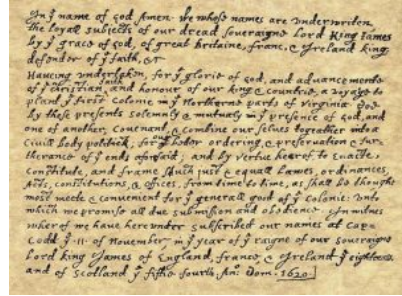 In yͤ name of god Amen. We whose names are underwriten,
the loyall subjects of our dread soveraigne Lord King James
by yͤ grace of god, of great britaine, franc, & Ireland king,
defender of yͤ faith, &c
Haveing undertaken, for yͤ glorie of god, and advancemente
of yͤ christian faith and honour of our king & countrie, a voyage to
plant yͤ first colonie in yͤ Northerne parts of Virginia. Doe
by these presents solemnly & mutualy in yͤ presence of god, and
one of another, covenant, & combine our selves togeather into a
civill body politick, for our better ordering, & preservation & fur-
therance of yͤ ends aforesaid; and by vertue hearof to enacte,
constitute, and frame such just & equall lawes, ordinances,
Acts, constitutions, & offices, from time to time, as shall be thought
most meete & convenient for yͤ generall good of yͤ Colonie: Unto
which we promise all due submission and obedience. In witnes
wherof we have hereunder subscribed our names at Cap=
Codd yͤ ·11· of November, in yͤ year of yͤ raigne of our soveraigne
lord king James of England, france, & Ireland yͤ eighteene
and of Scotland yͤ fiftie fourth. Anº: Dom. 1620.